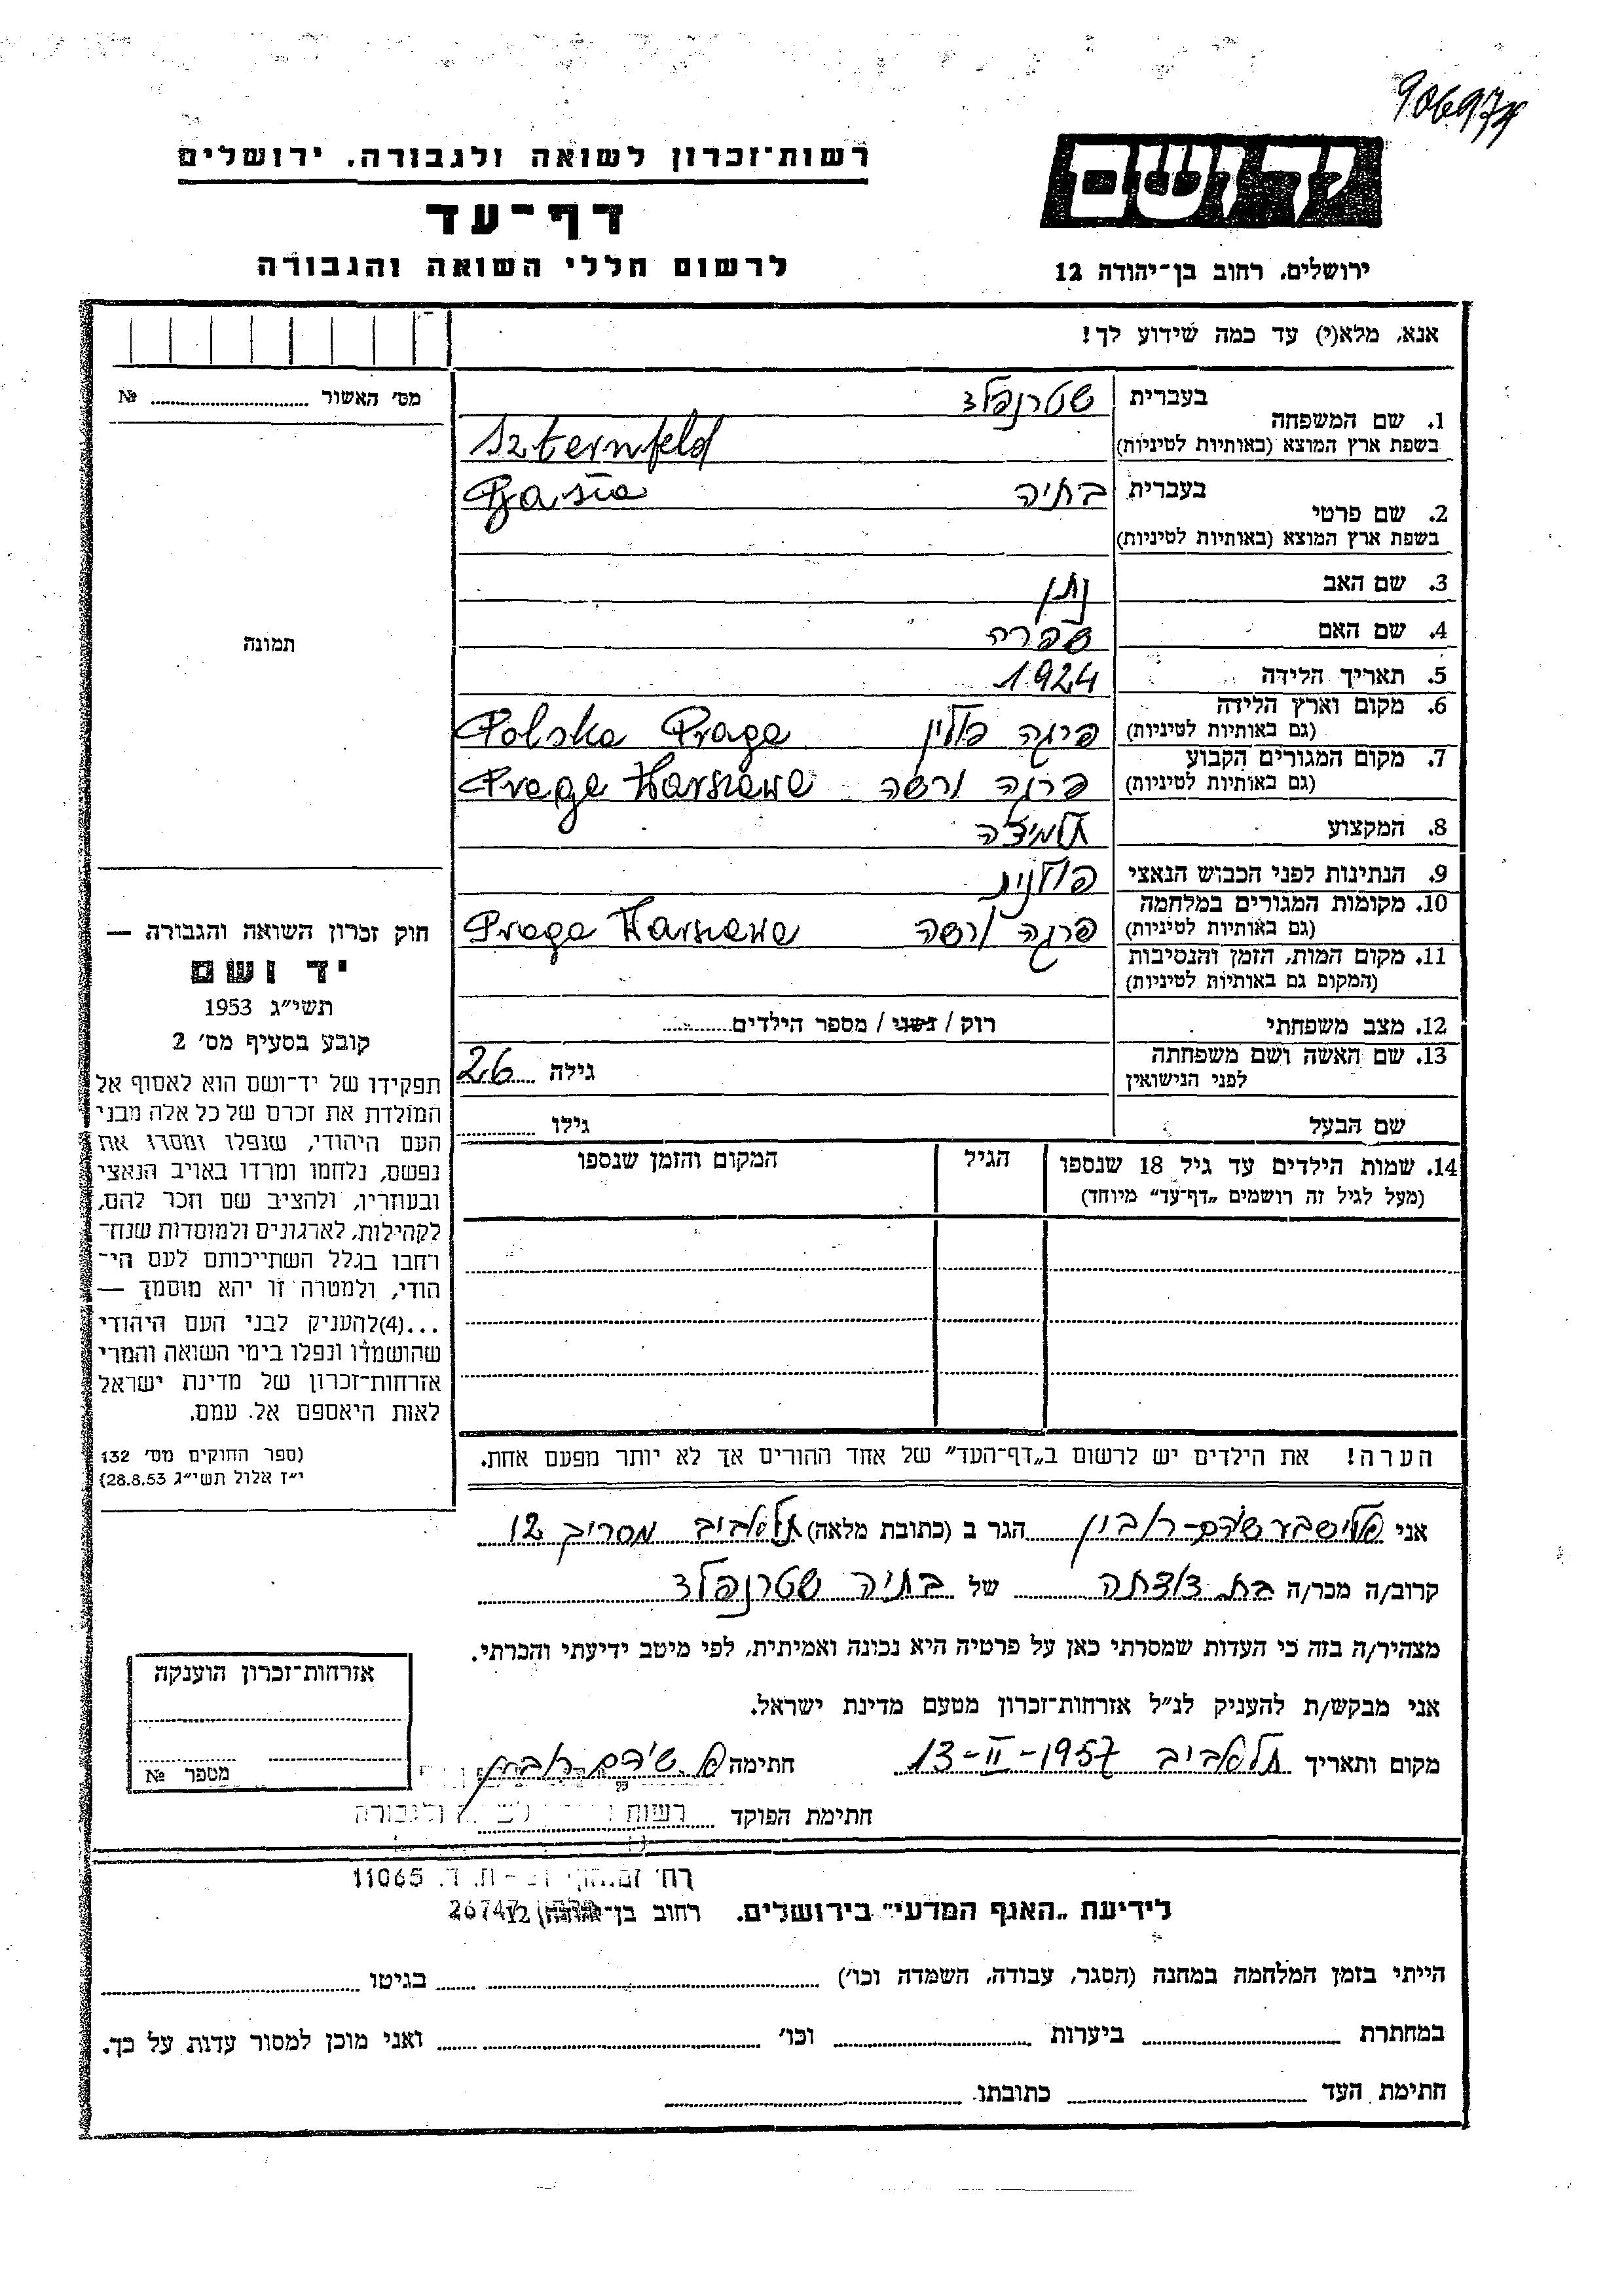 906974
רשות־זכרון לשואה ולגבורה. ירושלים
יד ושם
דף־עד
לרשום חללי השואה והגבורה
ירושלים, רחוב בן־יהודה 12
אנא, מלא(י) עד כמה שידוע לך!
מס׳ האשור ........ №
1. שם המשפחה
בעברית שטרנפלד
בשפת ארץ המוצא (באותיות לטיניות) Szternfeld
2. שם פרטי
בעברית בתיה Basia
בשפת ארץ המוצא (באותיות לטיניות)
3. שם האב נתן
4. שם האם שפרה
5. תאריך הלידה 1924
6. מקום וארץ הלידה
(גם באותיות לטיניות) פרגה פולין Polska Praga
7. מקום המגורים הקבוע
(גם באותיות לטיניות) פרגה ורשה Praga Warszawa
8. המקצוע תלמידה
9. הנתינות לפני הכבוש הנאצי פולנית
10. מקומות המגורים במלחמה
(גם באותיות לטיניות) פרגה ורשה Praga Warszawa
11. מקום המות, הזמן והנסיבות
(המקום גם באותיות לטיניות)
12. מצב משפחתי רוק / נשוי / מספר הילדים........
13. שם האשה ושם משפחתה
לפני הנישואין גילה 26
שם הבעל גילו ........
14. שמות הילדים עד גיל 18 שנספו הגיל המקום והזמן שנספו
(מעל לגיל זה רושמים „דף־עד״ מיוחד)
תמונה
חוק זכרון השואה והגבורה —
יד ושם
תשי״ג 1953
קובע בסעיף מס׳ 2
תפקידו של יד־ושם הוא לאסוף אל
המולדת את זכרם של כל אלה מבני
העם היהודי, שנפלו ומסרו את
נפשם, נלחמו ומרדו באויב הנאצי
ובעוזריו, ולהציב שם וזכר להם,
לקהילות, לארגונים ולמוסדות שנח־
רחבו בגלל השתייכותם לעם הי־
הודי, ולמטרה זו יהא מוסמך —
...(4)להעניק לבני העם היהודי
שהושמדו ונפלו בימי השואה והמרי
אזרחות־זכרון של מדינת ישראל
לאות היאספם אל עמם.
(ספר החוקים מס׳ 132
י״ז אלול תשי״ג 28.8.53)
הערה! את הילדים יש לרשום ב„דף־העד״ של אחד ההורים אך לא יותר מפעם אחת.
אני אלישבע שידם־רובין הגר ב (כתובת מלאה) תל אביב מסריק 12
קרוב/ה מכר/ה בת דודתה של בתיה שטרנפלד
מצהיר/ה בזה כי העדות שמסרתי כאן על פרטיה היא נכונה ואמיתית, לפי מיטב ידיעתי והכרתי.
אני מבקש/ת להעניק לנ״ל אזרחות־זכרון מטעם מדינת ישראל.
מקום ותאריך תל אביב 13-II-1957 חתימה
חתימת הפוקד
אזרחות־זכרון הוענקה
מספר №
רשות ולגבורה
ת. ד. 11065
לידיעת „האגף המדעי״ בירושלים. רחוב בן־יהודה 12
הייתי בזמן המלחמה במחנה (הסגר, עבודה, השמדה וכו׳) ........ בגיטו ........
במחתרת ........ ביערות ........ וכו׳ ........ ואני מוכן למסור עדות על כך.
חתימת העד ........ כתובתו ........